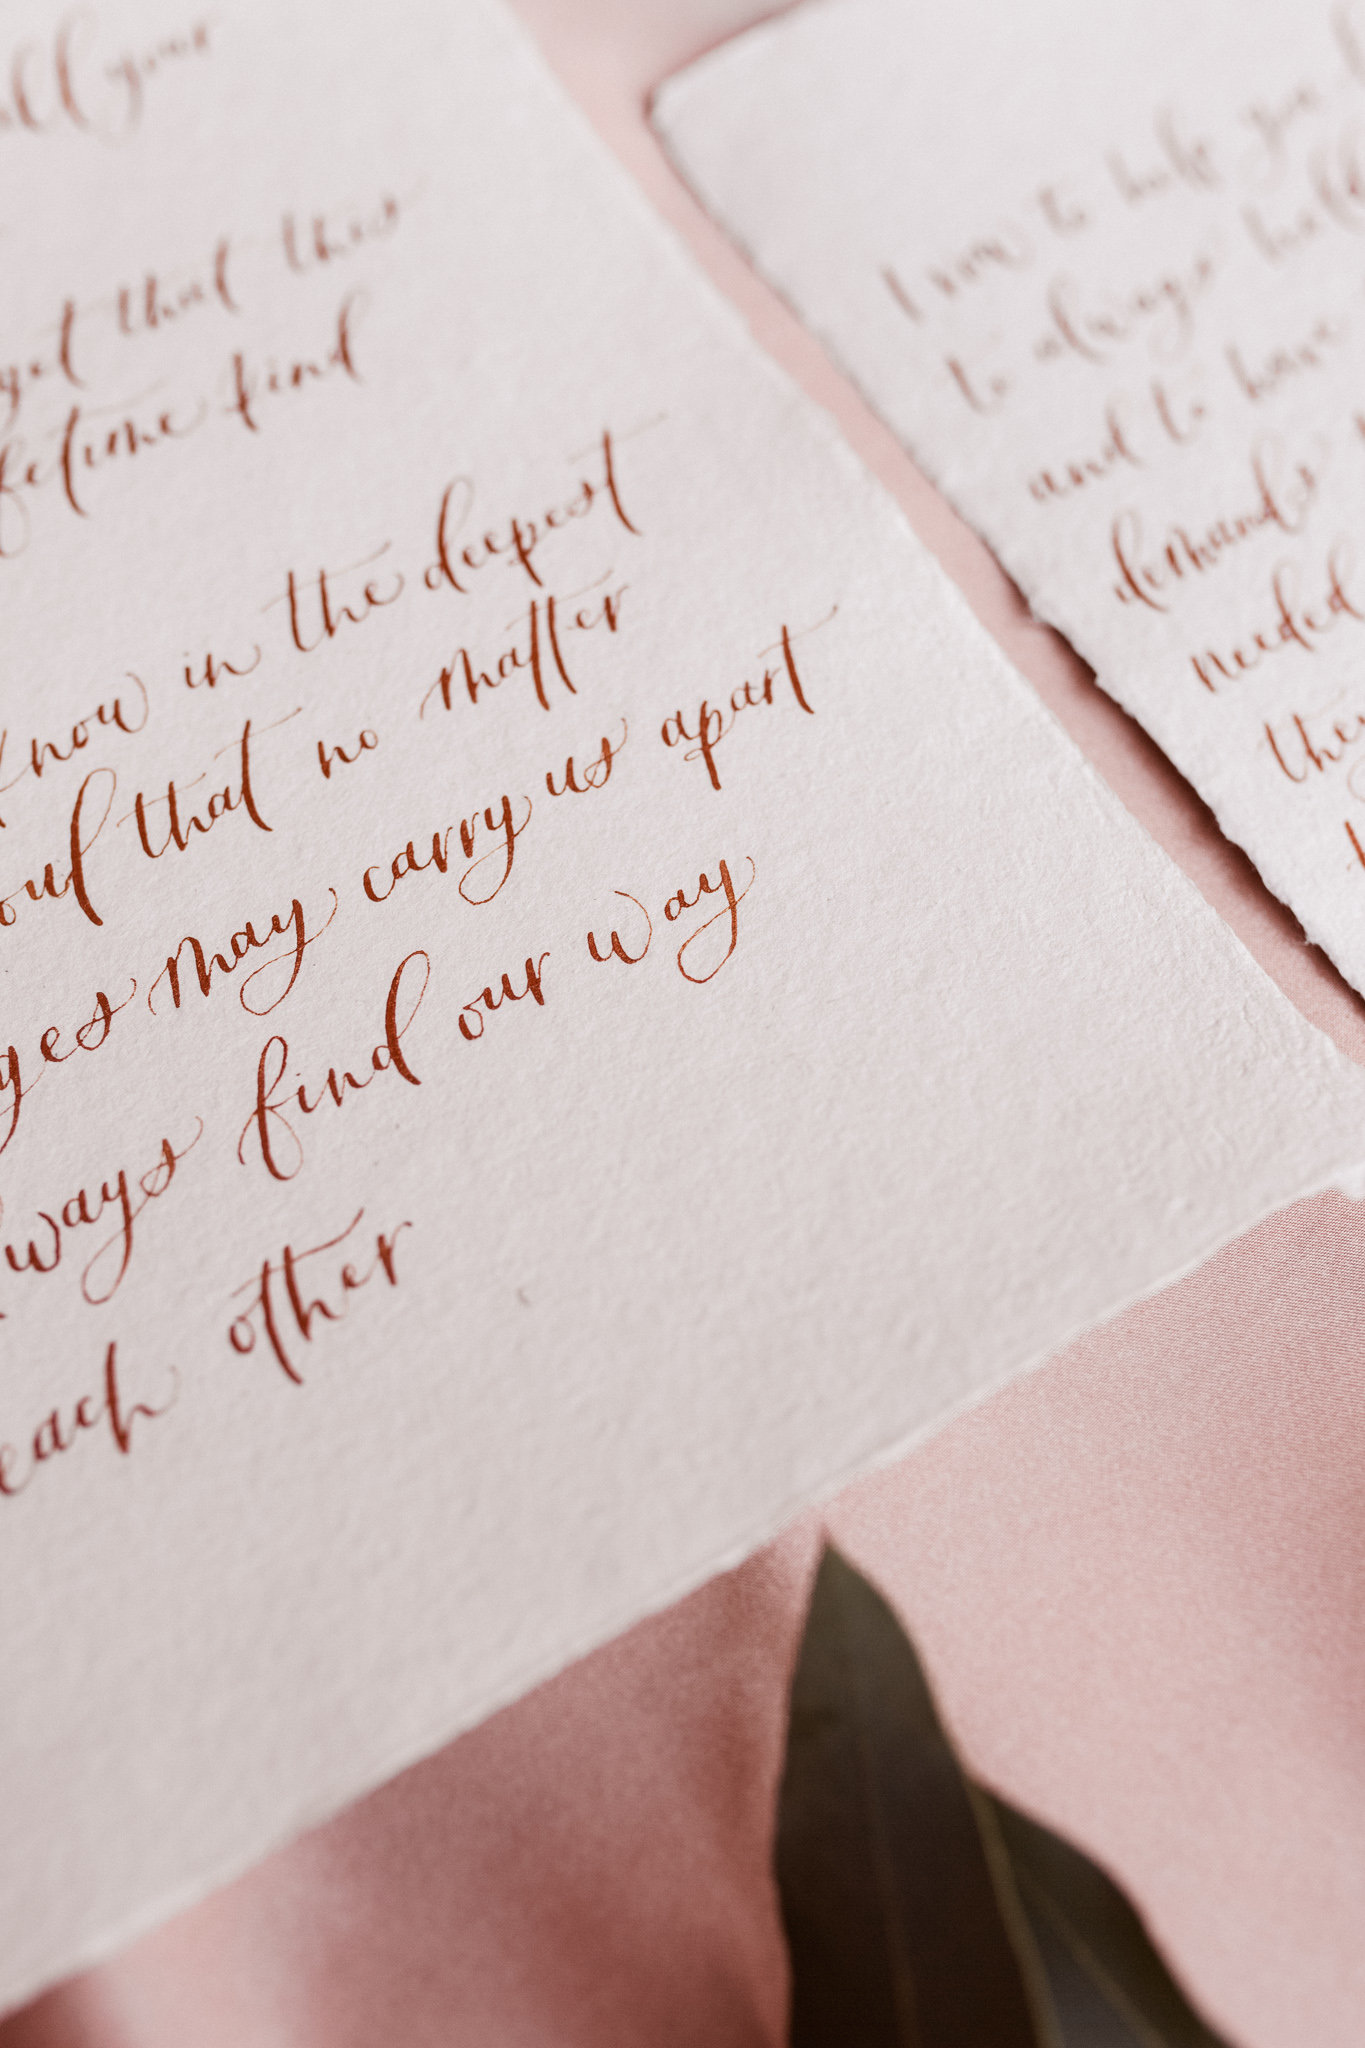 all your
get that this
fetime kind
know in the deepest
oul that no matter
ges may carry us apart
ways find our way
each other
I vow to help you
to always hold
and to have
demands
needed
they